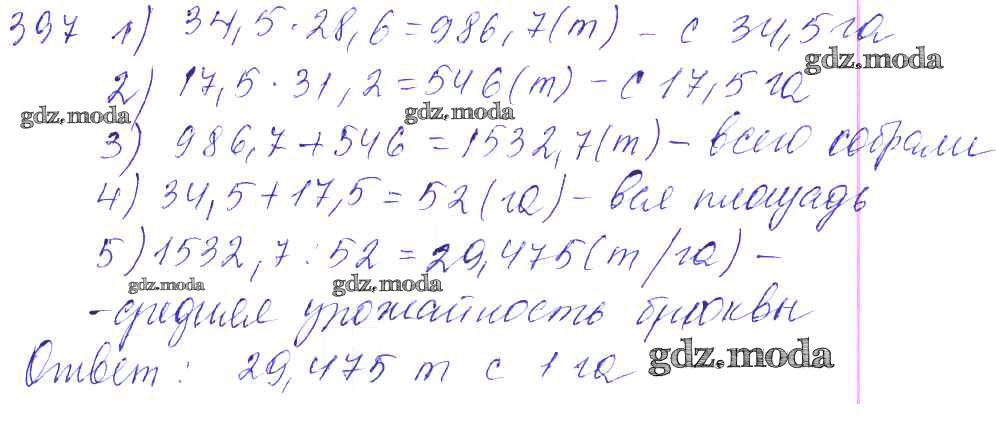 397 1) 34,5 · 28,6 = 986,7 (т) – с 34,5 га
gdz.moda
2) 17,5 · 31,2 = 546 (т) – с 17,5 га
gdz.moda gdz.moda
3) 986,7 + 546 = 1532,7 (т) – всего собрали
4) 34,5 + 17,5 = 52 (га) – вся площадь
5) 1532,7 : 52 = 29,475 (т/га) –
gdz.moda gdz.moda
- средняя урожайность брюквы
Ответ: 29,475 т с 1 га
gdz.moda